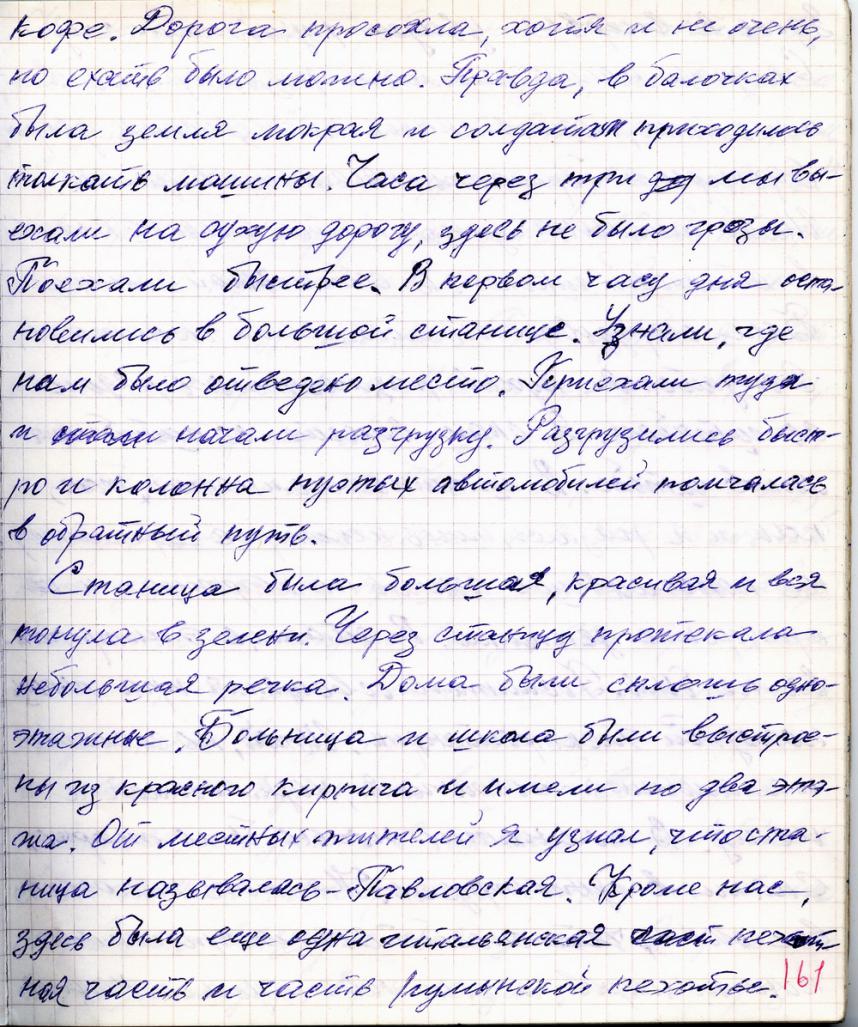 кофе. Дорога просохла, хотя и не очень,
но ехать было можно. Правда, в балочках
была земля мокрая и солдатам приходилось
толкать машины. Часа через три мы вы-
ехали на сухую дорогу, здесь не было грозы.
Поехали быстрее. В первом часу дня оста-
новились в большой станице. Узнали, где
нам было отведено место. Приехали туда
и стали начали разгрузку. Разгрузились быст-
ро и колонна пустых автомобилей помчалась
в обратный путь.
Станица была большая, красивая и вся
тонула в зелени. Через станицу протекала
небольшая речка. Дома были сплошь одно-
этажные. Больница и школа были выстрое-
ны из красного кирпича и имели по два эта-
жа. От местных жителей я узнал, что ста-
ница называлась - Павловская. Кроме нас,
здесь была еще одна итальянская част пехот-
ная часть и часть румынской пехоты.
161